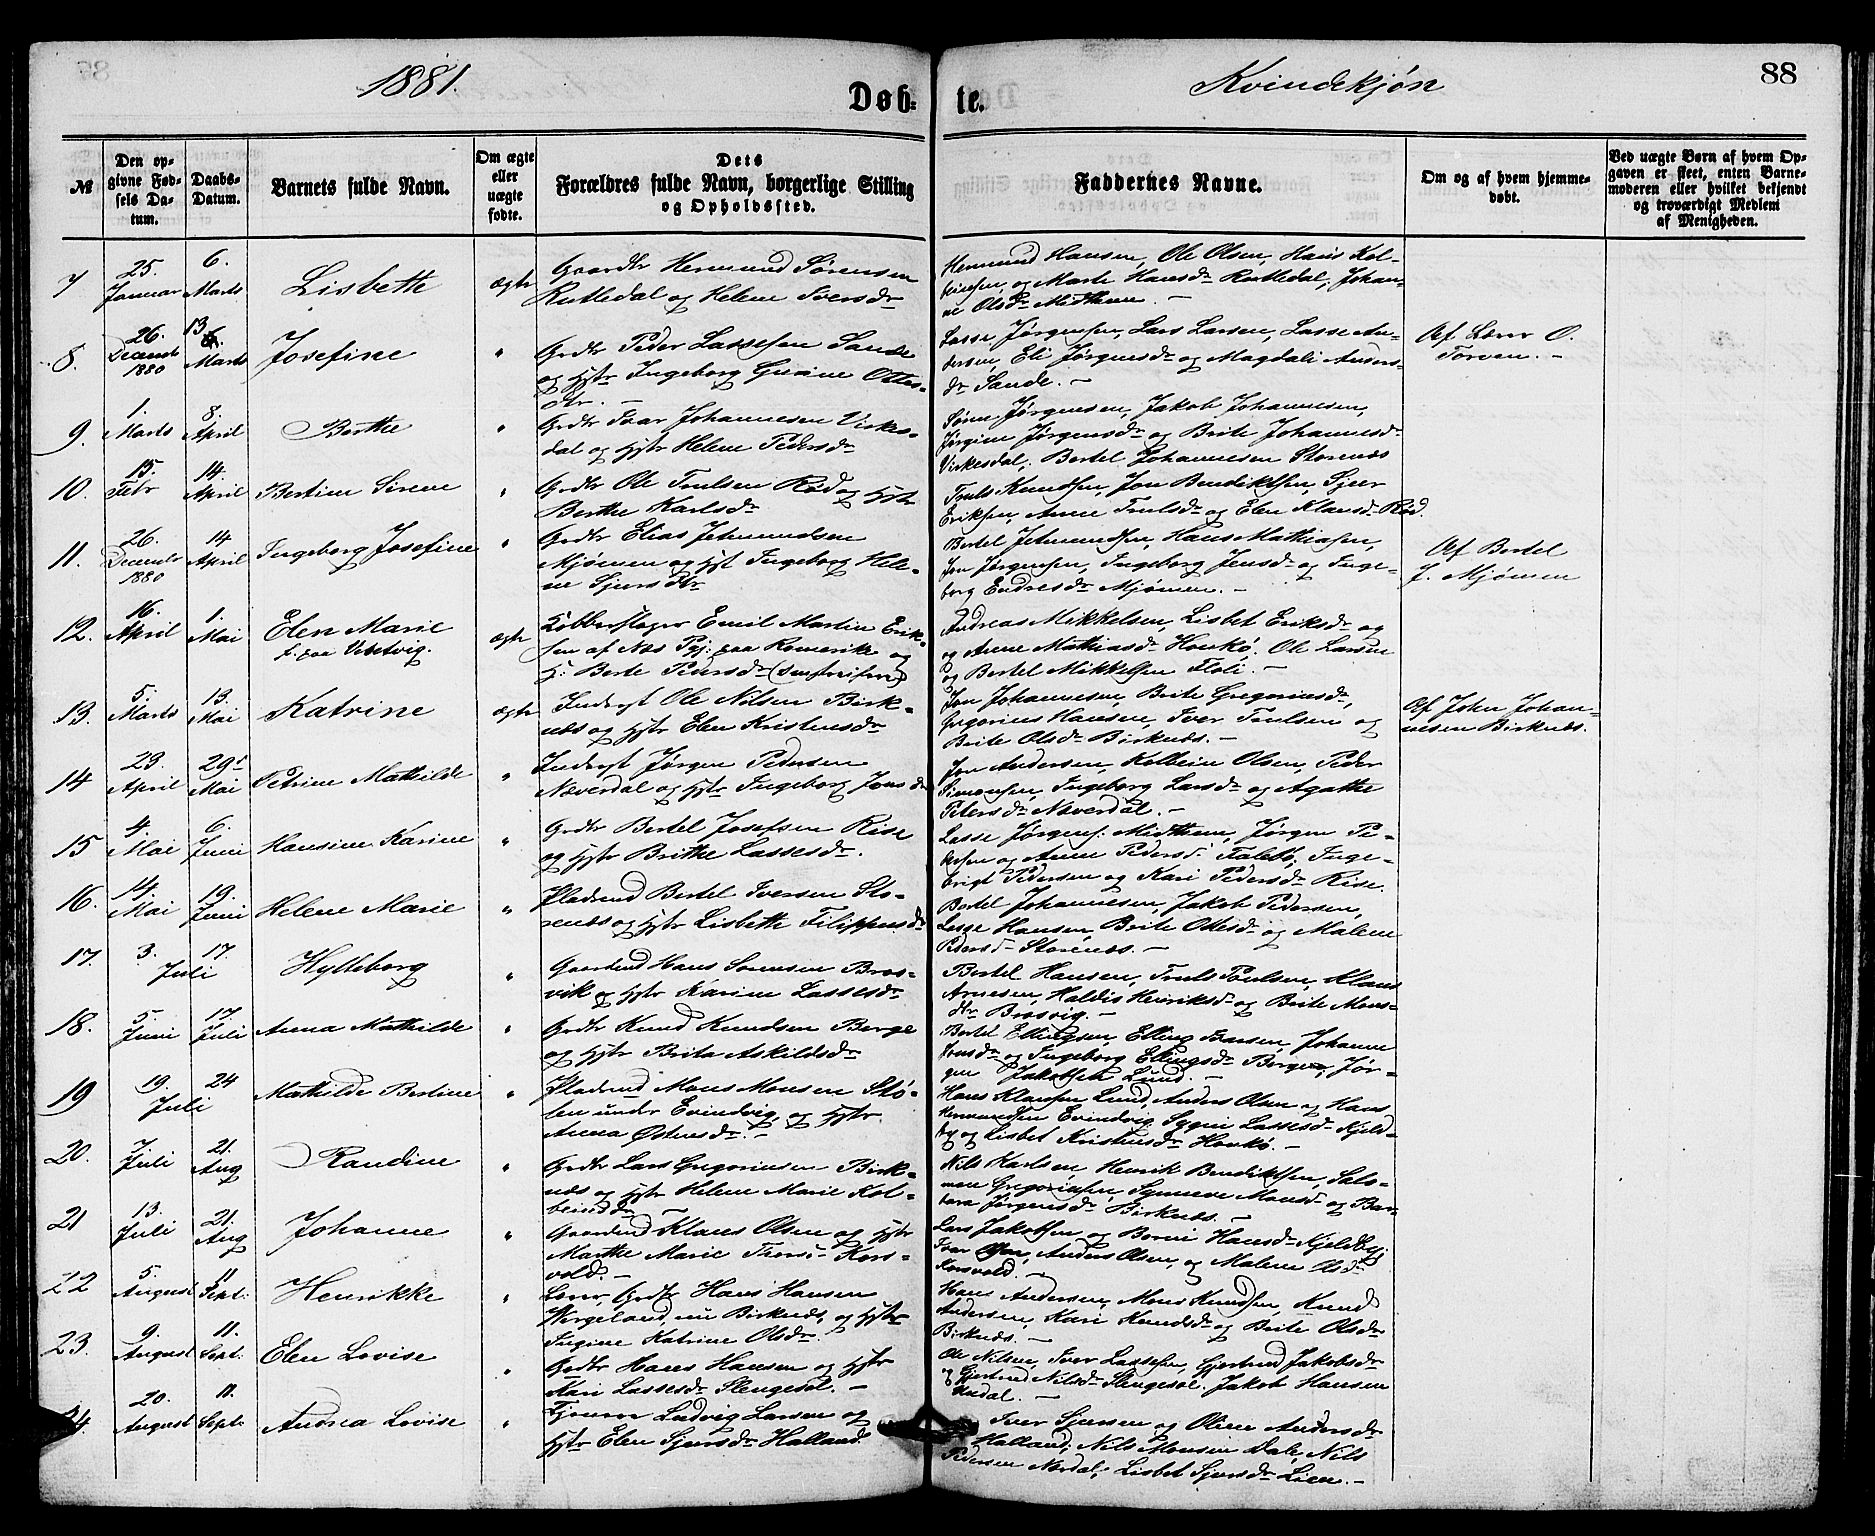 1881.
Døb-
te.
Kvindekjøn
88
№
Den op-
givne Fød-
sels Da-
tum.
Daabs-
Datum.
Barnets fulde Navn.
Om ægte
eller
uægte
fødte.
Dets
Forældres fulde Navn, borgerlige Stilling
og Opholdssted.
Faddernes Navne.
Om og af hvem hjemme-
døbt.
Ved uægte Børn af hvem Op-
gaven er skeet, enten Barne-
moderen eller hvilket bekjendt
og troværdigt Medlem
af Menigheden.
7
25.
Januar
6.
Marts
Lisbette
ægte
Gaardbr Hermund Sørensen
Rutledal og Helene Iversdr
Hermund Hansen, Ole Olsen, Hans Kol-
beinsen, og Marte Hansdr Rutledal, Johan-
ne Olsdr Midttun. —
8.
26.
Decemb
1880
13
Marts
Josefine
"
Grdbr Peder Lassesen Sande
og Hstr Ingeborg Gurine Ottes-
dtr. —
Lasse Jørgensen, Lars Larsen, Lasse An-
dersen, Eli Jørgensdr og Magdali Anders-
dr Sande. —
Af Lærer O.
Torven. —
9.
1.
Marts
8.
April
Berthe
"
Grdbr Ivar Johannesen Virkes-
dal og Hstr Helene Pedersdr
Jørgensen, Jakob Johannesen,
Jørgine Jørgensdr og Brite Johannesdr
Virkesdal, Bertel Johannesen Storenæs
10.
15.
Febr
14.
April
Bertine Sirene
"
Grdbr Ole Trulsen Rød og Hstr
Berthe Karlsdr
Truls Knudsen, Jon Bendiktsen, Sjur
Eriksen, Anne Trulsdr og Elen Klausdr Rød.
11.
26.
Decemb
1880
14
April
Ingeborg Josefine
"
Grdbr Elias Jetmundsen
Mjømen og Hst Ingeborg Hele-
ne Sjursdtr
Bertel Jetmundsen, Hans Mathiasen,
Jon Jørgensen, Ingeborg Jensdr og Inge-
borg Endresdr Mjømen. —
Af Bertel
J. Mjømen
12.
16.
April
1.
Mai
Elen Marie
f. paa
ægte
Kobberslager Emil Martin Erik-
sen af Næs Pgj: paa Romerike og
H: Berte Pedersdr
Andreas Mikkelsen, Lisbet Eriksdr og
og Anne Mathiasdr Hovkø. Ole Larsen
og Bertel Mikkelsen Floli. —
13.
5.
Marts
13.
Mai
Katrine
ægte
Inderst Ole Nilsen Birk-
næs og Hstr Elen Kristensdr
Jon Johannesen, Brite Gregoriusdr,
Gregorius Hansen, Iver Trulsen og
Brite Olsdr Birknæs. —
Af John Johan-
nesen Birknæs.
14
23.
April
29de
Mai
Petrine Mathilde
"
Inderst Jørgen Pedersen
Næverdal og Hstr Ingeborg Jonsdr
Jon Andersen, Kolbein Olsen, Peder
Simonsen, Ingeborg Larsdr og Agathe
Petersdr Næverdal. —
15
4.
Mai
6.
Juni
Hansine Karine
"
Grdbr Bertel Josefsen Rise
og Hstr Brithe Lassesdr.
Lasse Jørgens. Midttun, Jørgen Pe-
dersen og Anne Pedersd. Inge-
brigt Pedersen og Kari Pedersdr Rise.
16.
14.
Mai
19.
Juni
Helene Marie
"
Pladsmd Bertel Iversen Sto-
renæs og Hstr Lisbette Filippusdr
Bertel Johannesen, Jakob Pedersen,
Lasse Hansen, Brite Ottesdr og Malene
Pedersd Storenæs. —
17.
3.
17.
Juli
Hylleborg
"
Gaardmd Hans Sørensen Bros-
vik og Hstr Karine Lassesdr
Bertel Hansen, Truls Poulsen, Klaus
Arnesen, Haldis Henriksdr og Brite Mons-
dtr Brosvig. —
18.
5.
Juni
17.
Juli
Anna Mathilde
"
Grdbr Knud Knudsen Berge
og Hstr Brita Askildsdr
Bertel Ellingsen, Elling Hansen, Johanne
Jonsdr og Ingeborg Ellingsdr Berge, Jør-
gen Jakobsen Lund. —
19
19.
24
Juli
Mathilde Bertine
"
Pladsmd Mons Monsen Stø-
len under Evindvig og Hstr
Anna Østensdr. —
Hans Klausen Lund, Anders Olsen og Hans
Hermundsen Evindvig, Lassesdr Kjeld-
by og Lisbet Kristensdr Hovkø. —
20.
7.
Juli
21.
Aug
Randine
"
Grdbr Lars Gregoriusen Birk-
næs og Hstr Helene Marie Kol-
beinsdr
Nils Karlsen, Henrik Bendiktsen, Salo-
mon Gregoriusen, Synneve Monsdr og Bar-
bara Jørgensdr Birknæs. —
21
13.
Juli
21.
Aug
Johanne
"
Gaardmd Klaus Olsen og Hstr
Marthe Marie Kors-
vold. —
Lars Jakobsen og Hansdr Kjeldby;
Ivar Olsen, Anders Olsen, og Malene Olsdr
Korsvold. —
22
5.
August
11
Sept.
Henrikke
"
Lærer, Grdbr Hans Hansen
Wergeland, nu Birknæs, og Hstr
Katrine Olsdr.
Hans Andersen, Mons Knudsen, Knud
Andersen, Kari Knudsdr og Brite Olsdr
Birknæs. —
23.
9.
August
11.
Sept.
Elen Lovise
"
Grdbr Hans Hansen og Hstr
Kari Lassesdr Slengesol. —
Ole Nilsen, Iver Lassesen, Gjertrud Jakobsdr
og Gjertrud Nilsdr Slengesol. Jakob Hansen
24.
20.
August
11.
Sept.
Andrea Lovise
"
Ludvig Larsen og
Hstr Elen Sjursdr Halland.
Iver Sjursen og Oline Andersdr
Halland, Nils Monsen Dale, Nils
Pedersen Nordal, Lisbet Sjursdr Lien. —